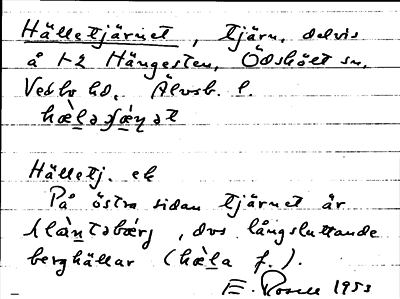 Hälletjärnet, tjärn, delvis
å 1-2 Hängesten, Ödskölt sn,
Vedbo hd. Älvsb. l.
hæ̀lǝɕǽɳǝt
Hälletj. ek
På östra sidan tjärnet är
slàntǝbærj, dvs långsluttande
berghällar (hæ̀la f.).
E. Rosell 1953